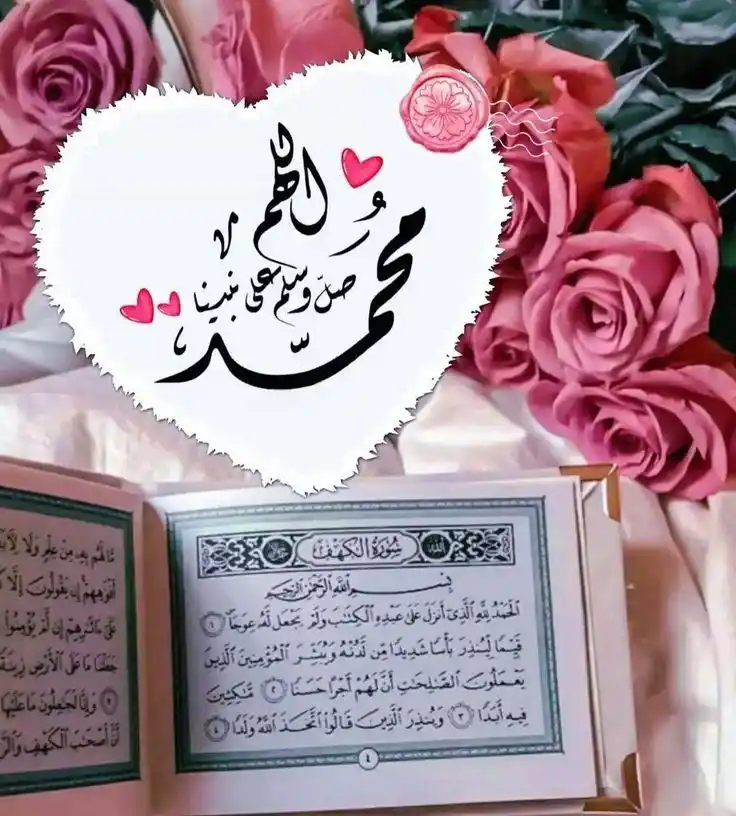 اللهم
صل وسلم على نبينا
محمد
سُورَةُ الكَهْفِ
بِسْمِ اللَّهِ الرَّحْمَٰنِ الرَّحِيمِ
الْحَمْدُ لِلَّهِ الَّذِي أَنزَلَ عَلَىٰ عَبْدِهِ الْكِتَابَ وَلَمْ يَجْعَل لَّهُ عِوَجًا ۜ ١
قَيِّمًا لِّيُنذِرَ بَأْسًا شَدِيدًا مِّن لَّدُنْهُ وَيُبَشِّرَ الْمُؤْمِنِينَ الَّذِينَ
يَعْمَلُونَ الصَّالِحَاتِ أَنَّ لَهُمْ أَجْرًا حَسَنًا ٢ مَّاكِثِينَ
فِيهِ أَبَدًا ٣ وَيُنذِرَ الَّذِينَ قَالُوا اتَّخَذَ اللَّهُ وَلَدًا ٤
٤
مَّا لَهُم بِهِ مِنْ عِلْمٍ وَلَا
أَفْوَاهِهِمْ إِن يَقُولُونَ إِلَّا
عَلَىٰ آثَارِهِمْ إِن لَّمْ يُؤْمِنُوا
جَعَلْنَا مَا عَلَى الْأَرْضِ زِينَةً
وَإِنَّا لَجَاعِلُونَ مَا عَلَيْهَا
أَنَّ أَصْحَابَ الْكَهْفِ